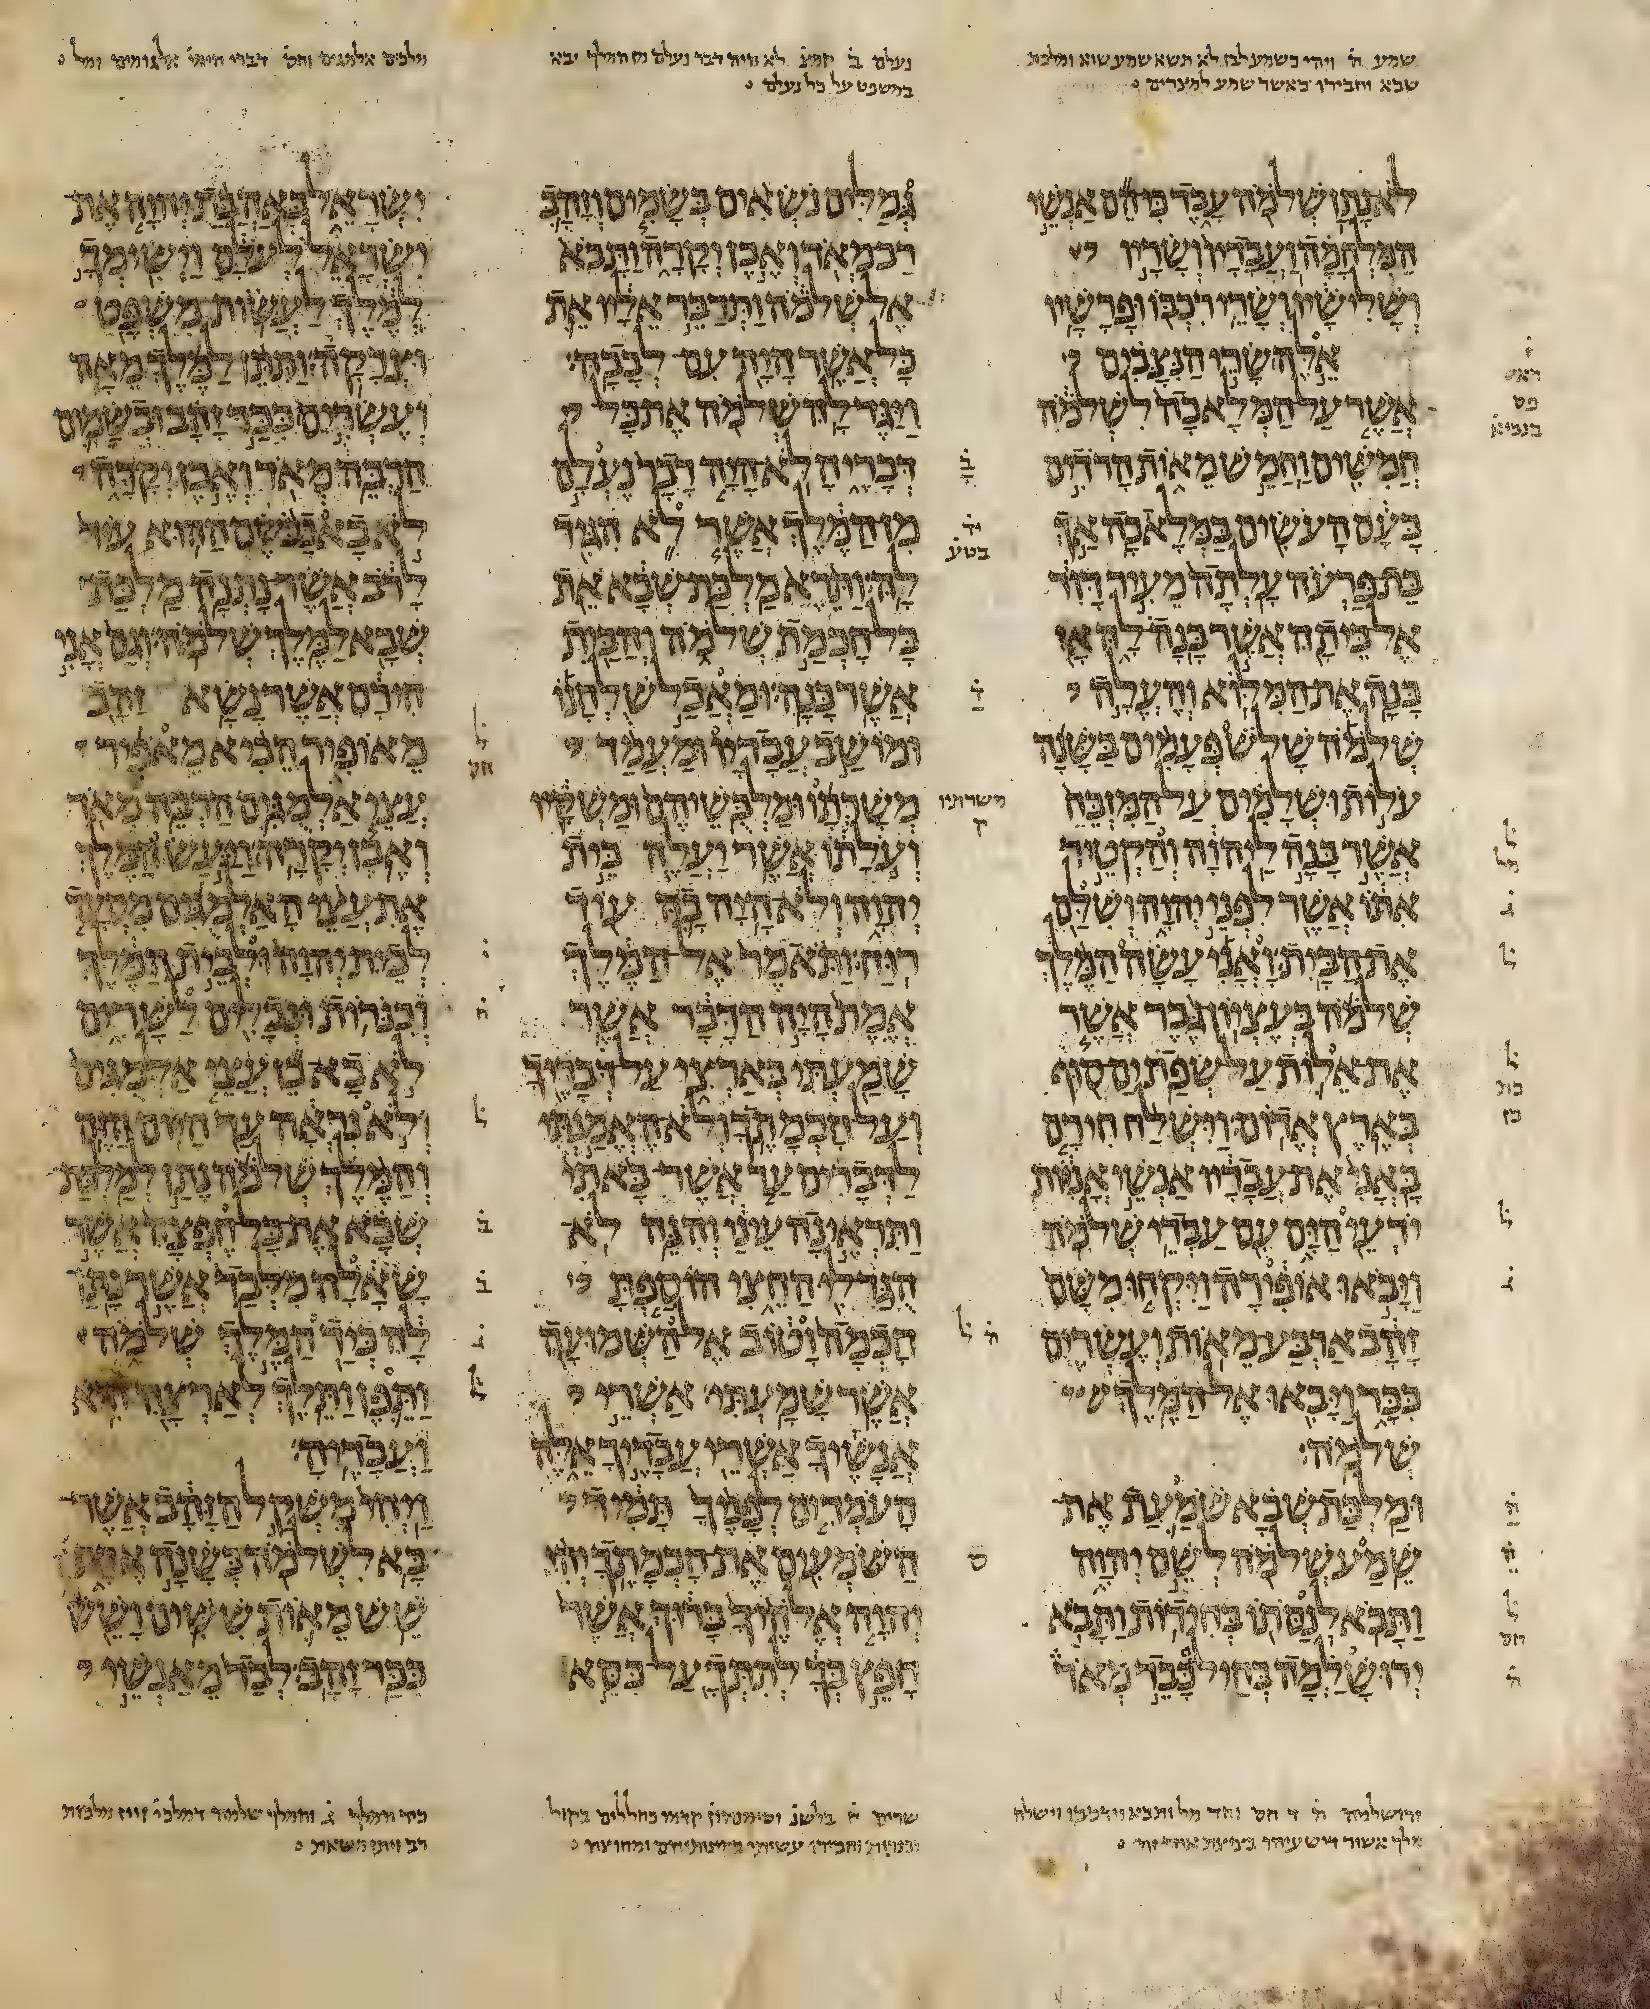 שמע ה ויהי כשמע לבן לא תשא שמע שוא ומלכת
שבא וחבירו כאשר שמע למצרים
נעלם ב לא היה דבר נעלם מן המלך יבא
במשפט על כל נעלם
מלכים אלמגים וחס דברי הימי אלגומים ומל
לא נתן שלמה עבד כי הם אנשי
המלחמה ועבדיו ושריו
ושלישיו ושרי רכבו ופרשיו
אלה שרי הנצבים
אשר על המלאכה לשלמה
חמשים וחמש מאות הרדים
בעם העשים במלאכה אך
בת פרעה עלתה מעיר דוד
אל ביתה אשר בנה לה אז
בנה את המלוא והעלה
שלמה שלש פעמים בשנה
עלות ושלמים על המזבח
אשר בנה ליהוה והקטיר
אתו אשר לפני יהוה ושלם
את הבית ואני עשה המלך
שלמה בעציון גבר אשר
את אלות על שפת ים סוף
בארץ אדום וישלח חירם
באני את עבדיו אנשי אניות
ידעי הים עם עבדי שלמה
ויבאו אופירה ויקחו משם
זהב ארבע מאות ועשרים
ככר ויבאו אל המלך ש
שלמה
ומלכת שבא שמעת את
שמע שלמה לשם יהוה
ותבא לנסתו בחידות ותבא
ירושלמה בחיל כבד מאד
גמלים נשאים בשמים וזהב
רב מאד ואבן יקרה ותבא
אל שלמה ותדבר אליו את
כל אשר היה עם לבבה
ויגד לה שלמה את כל
דבריה לא היה דבר נעלם
מן המלך אשר לא הגיד
לה ותרא מלכת שבא את
כל חכמת שלמה והבית
אשר בנה ומאכל שלחנו
ומושב עבדיו ומעמד
משרתו ומלבשיהם ומשקיו
ועלתו אשר יעלה בית
יהוה ולא היה בה עוד
רוח ותאמר אל המלך
אמת היה הדבר אשר
שמעתי בארצי על דבריך
ועל חכמתך ולא האמנתי
לדברים עד אשר באתי
ותראינה עיני והנה לא
הגד לי החצי הוספת
חכמה וטוב אל השמועה
אשר שמעתי אשרי
אנשיך אשרי עבדיך אלה
העמדים לפניך תמיד
השמעים את חכמתך יהי
יהוה אלהיך ברוך אשר
חפץ בך לתתך על כסא
ישראל באהבת יהוה את
ישראל לעלם וישימך
למלך לעשות משפט
וצדקה ותתן למלך מאה
ועשרים ככר זהב ובשמים
הרבה מאד ואבן יקרה
לא בא כבשם ההוא עוד
לרב אשר נתנה מלכת
שבא למלך שלמה וגם אני
חירם אשר נשא זהב
מאופיר הביא מאפיר
עצי אלמגים הרבה מאד
ואבן יקרה ויעש המלך
את עצי האלמגים מסעד
לבית יהוה ולבית המלך
וכנרות ונבלים לשרים
לא בא כן עצי אלמגים
ולא נראה עד היום הזה
והמלך שלמה נתן למלכת
שבא את כל חפצה אשר
שאלה מלבד אשר נתן
לה כיד המלך שלמה
ותפן ותלך לארצה היא
ועבדיה
ויהי משקל הזהב אשר
בא לשלמה בשנה אחת
שש מאות ששים ושש
ככר זהב לבד מאנשי